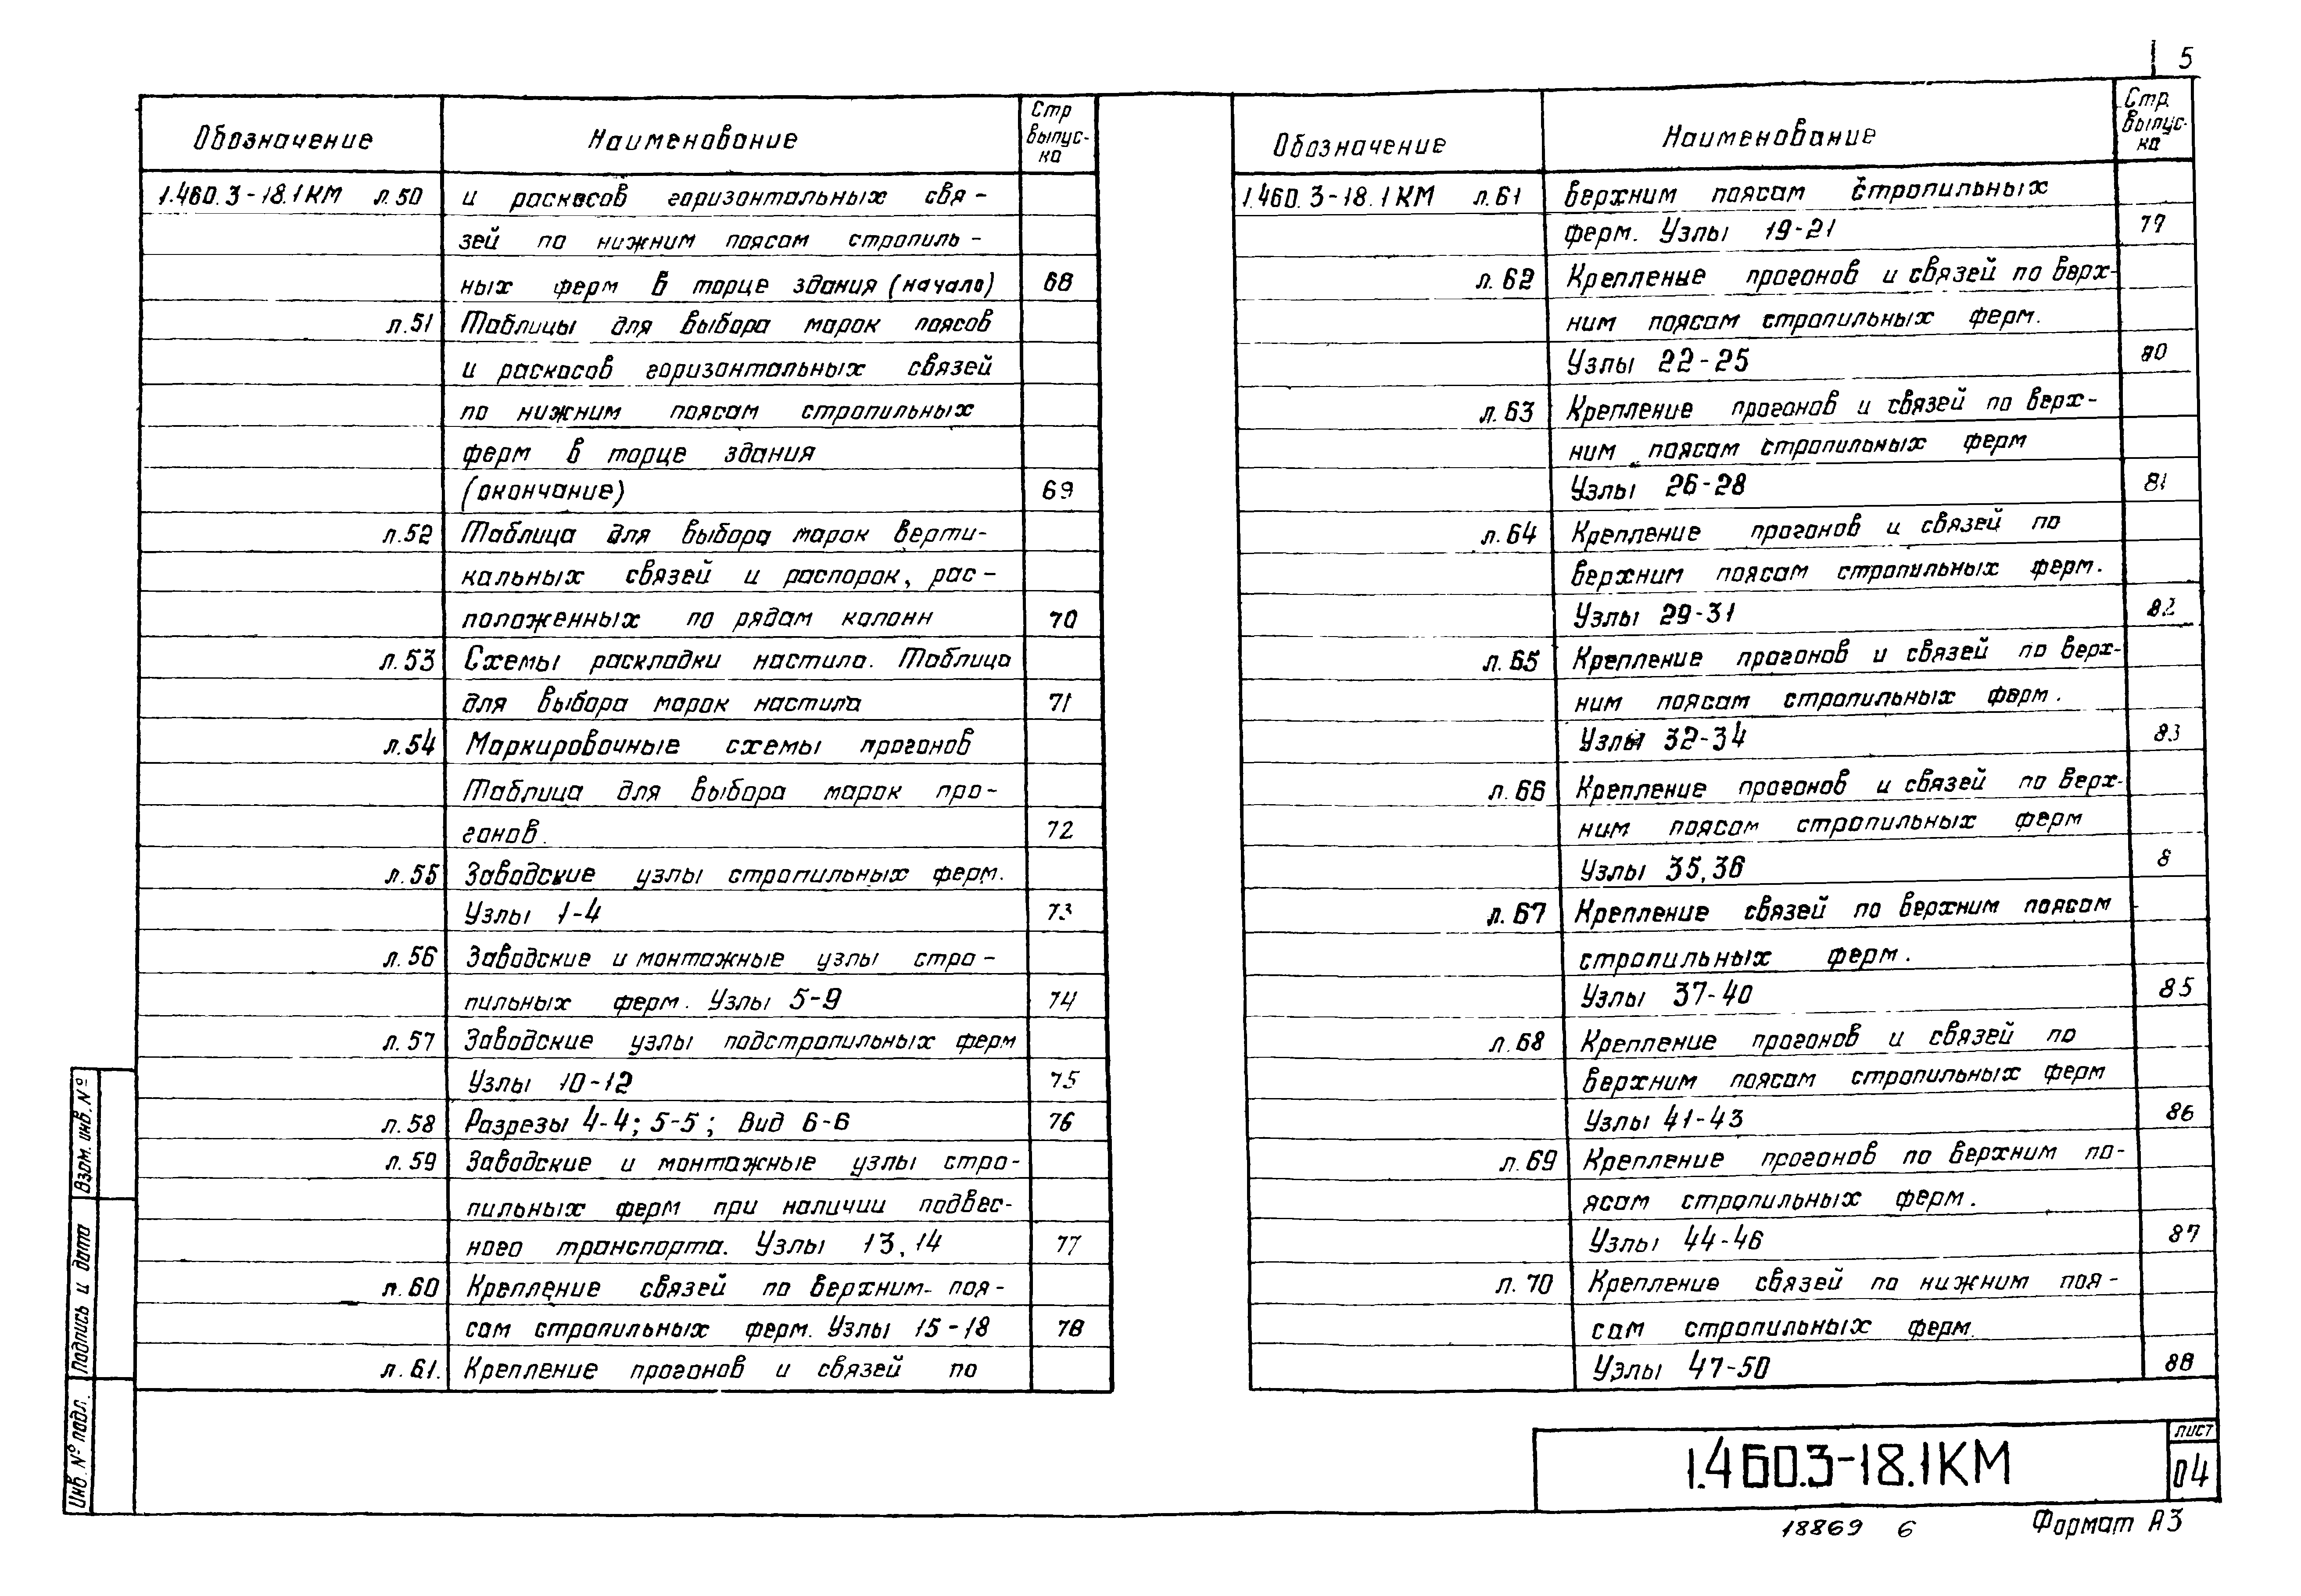 5
Обозначение Наименование Стр выпус-ка
1.460.3-18.1КМ л.50 и раскосов горизонтальных свя-
зей по нижним поясам стропиль-
ных ферм в торце здания (начало) 68
л.51 Таблицы для выбора марок поясов
и раскосов горизонтальных связей
по нижним поясам стропильных
ферм в торце здания
(окончание) 69
л.52 Таблица для выбора марок верти-
кальных связей и распорок, рас-
положенных по рядам колонн 70
л.53 Схемы раскладки настила. Таблица
для выбора марок настила 71
л.54 Маркировочные схемы прогонов
Таблица для выбора марок про-
гонов. 72
л.55 Заводские узлы стропильных ферм.
Узлы 1-4 73
л.56 Заводские и монтажные узлы стро-
пильных ферм. Узлы 5-9 74
л.57 Заводские узлы подстропильных ферм
Узлы 10-12 75
л.58 Разрезы 4-4; 5-5; Вид 6-6 76
л.59 Заводские и монтажные узлы стро-
пильных ферм при наличии подвес-
ного транспорта. Узлы 13,14 77
л.60 Крепление связей по верхним- поя-
сам стропильных ферм. Узлы 15-18 78
л.61. Крепление прогонов и связей по
Обозначение Наименование Стр. выпус-ка
1.460.3-18.1КМ л.61 верхним поясам стропильных
ферм. Узлы 19-21 79
л.62 Крепление прогонов и связей по верх-
ним поясам стропильных ферм.
Узлы 22-25 80
л.63 Крепление прогонов и связей по верх-
ним поясам стропильных ферм
Узлы 26-28 81
л.64 Крепление прогонов и связей по
верхним поясам стропильных ферм.
Узлы 29-31 82
л.65 Крепление прогонов и связей по верх-
ним поясам стропильных ферм.
Узлы 32-34 83
л.66 Крепление прогонов и связей по верх-
ним поясам стропильных ферм
Узлы 35,36 8
л.67 Крепление связей по верхним поясам
стропильных ферм.
Узлы 37-40 85
л.68 Крепление прогонов и связей по
верхним поясам стропильных ферм
Узлы 41-43 86
л.69 Крепление прогонов по верхним по-
ясам стропильных ферм.
Узлы 44-46 87
л.70 Крепление связей по нижним поя-
сам стропильных ферм.
Узлы 47-50 88
Взам. инв. №
Подпись и дата
Инв. № подл.
1.460.3-18.1КМ
лист
04
18869 6 Формат А3